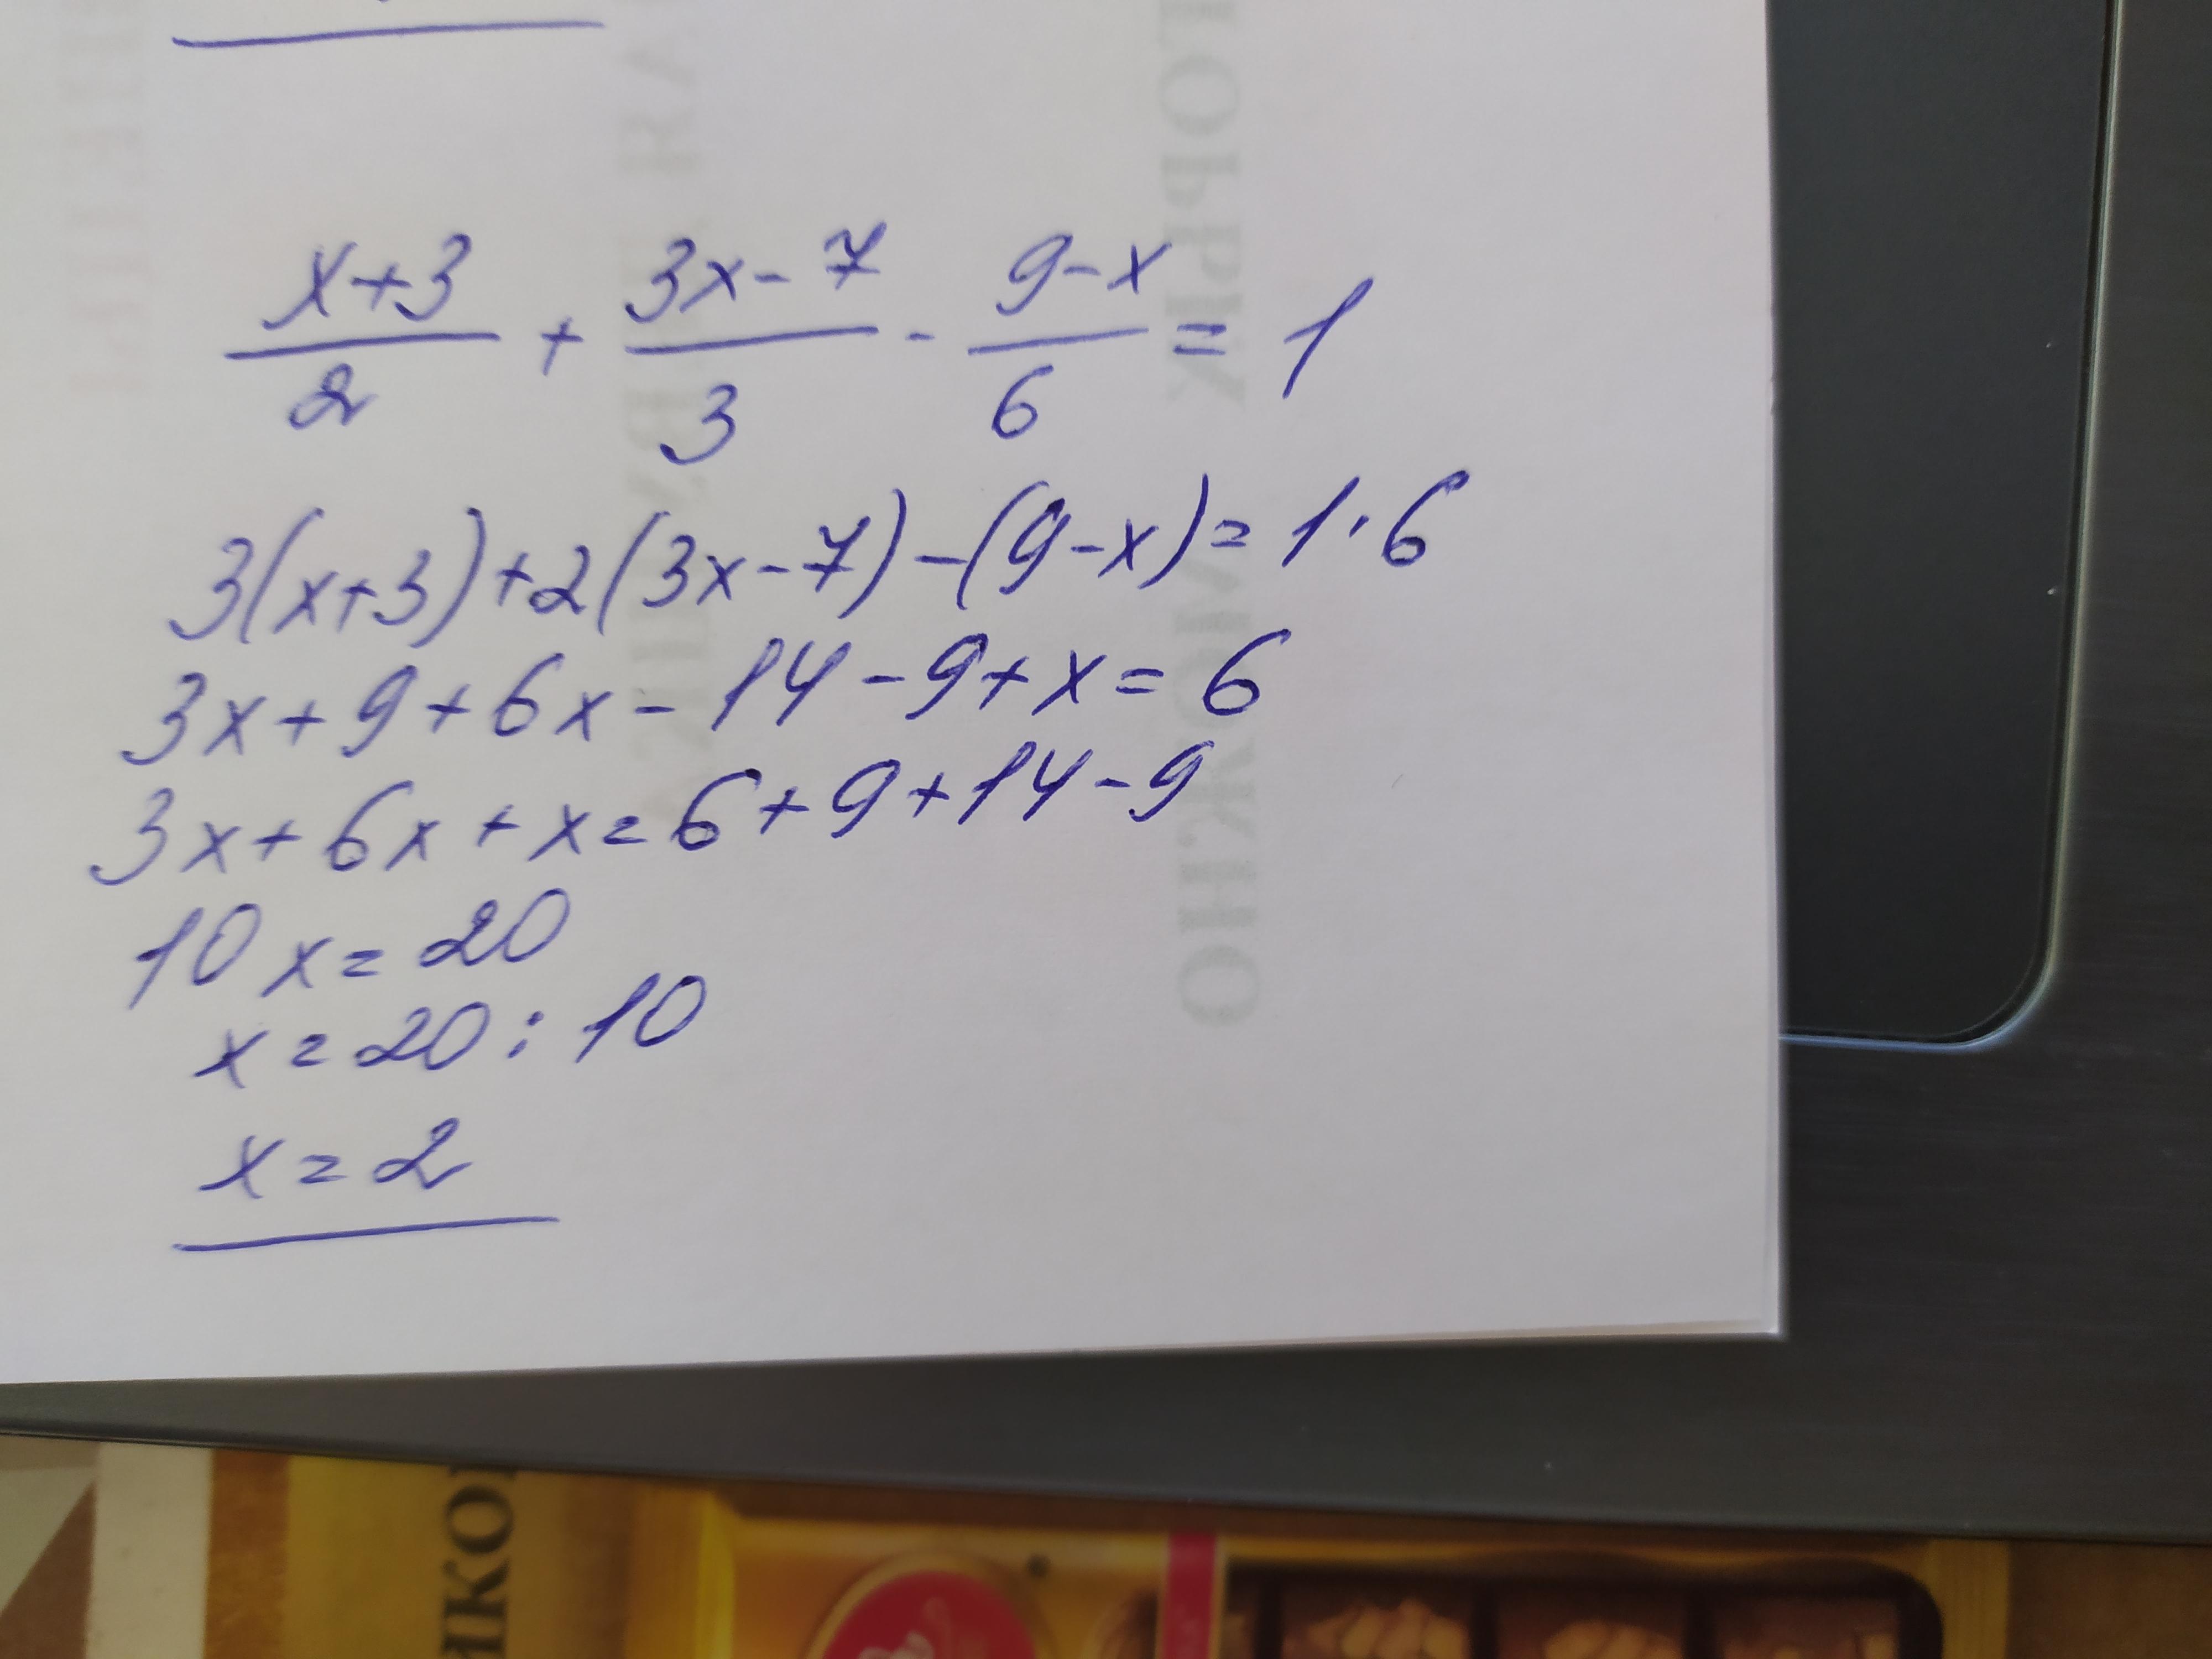 (x+3)/2 + (3x-7)/3 - (9-x)/6 = 1
3(x+3)+2(3x-7)-(9-x)=1·6
3x+9+6x-14-9+x=6
3x+6x+x=6+9+14-9
10x=20
x=20:10
x=2